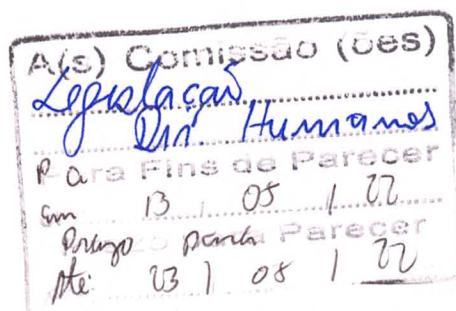 A(s) Comissão (ões)
Legislação
Dir. Humanos
Para Fins de Parecer
Em 13 / 05 / 22
Prazo para Parecer
Até 23 / 05 / 22